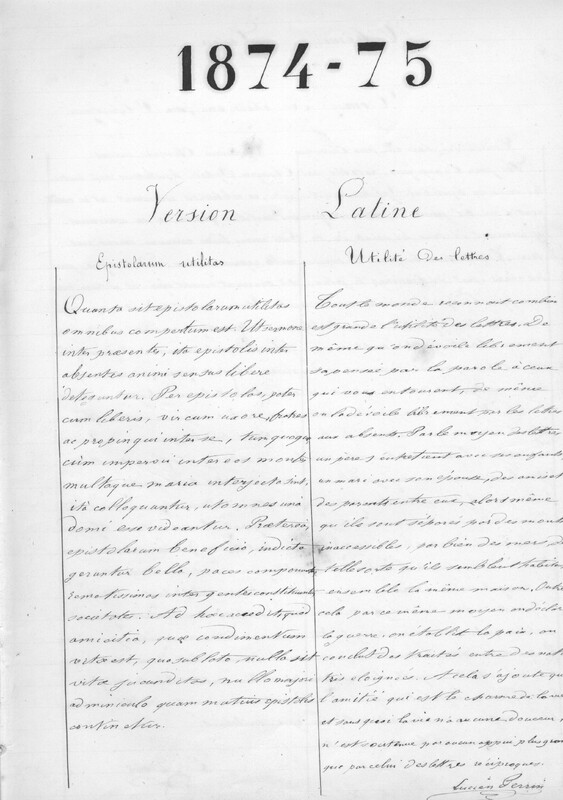 1874-75
Version Latine
Epistolarum utilitas
Quanta sit epistolarum utilitas
omnibus compertum est. Ut sermone
inter præsente, ita epistolis inter
absentes animi sensus libere
deteguntur. Per epistolas, pater
cum liberis, vir cum uxore, fratres
ac propinqui inter se, tunc quoque
cùm impervii inter eos montes
multaque maria interjecta sunt,
ità colloquuntur, ut omnes unâ
domi esse videantur. Præterea,
epistolarum beneficio, indicta
geruntur bella, paces componuntur
remotissimas inter gentes constituuntur
societates. Ad hæc accedit, quod
amicitia, quæ condimentum
vitæ est, quo sublato, nulla sit
vitæ jucunditas, nullo majori
adminiculo quam mutuis epistolis
continetur.
Utilité des lettres
Tout le monde reconnait combien
est grande l'utilité des lettres. De
même qu'on dévoile librement
sa pensée par la parole à ceux
qui vous entourent, de même
on la dévoile librement par les lettres
aux absents. Par le moyen des lettres
un père s'entretient avec ses enfants
un mari avec son épouse, des amis et
des parents entre eux, alors même
qu'ils sont séparés par des monts
inaccessibles, par bien des mers, de
telle sorte qu'ils semblent habiter
ensemble la même maison. Outre
cela par ce même moyen on déclare
la guerre, on établit la paix, on
conclut des traités entre des nations
très éloignées. A cela s'ajoute que
l'amitié qui est le charme de la vie
et sans quoi la vie n'a aucune douceur,
n'est soutenue par aucun appui plus grand
que par celui des lettres réciproques.
Lucien Perrin